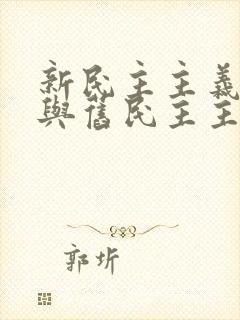 新民主主義
與舊民主主
郭圻